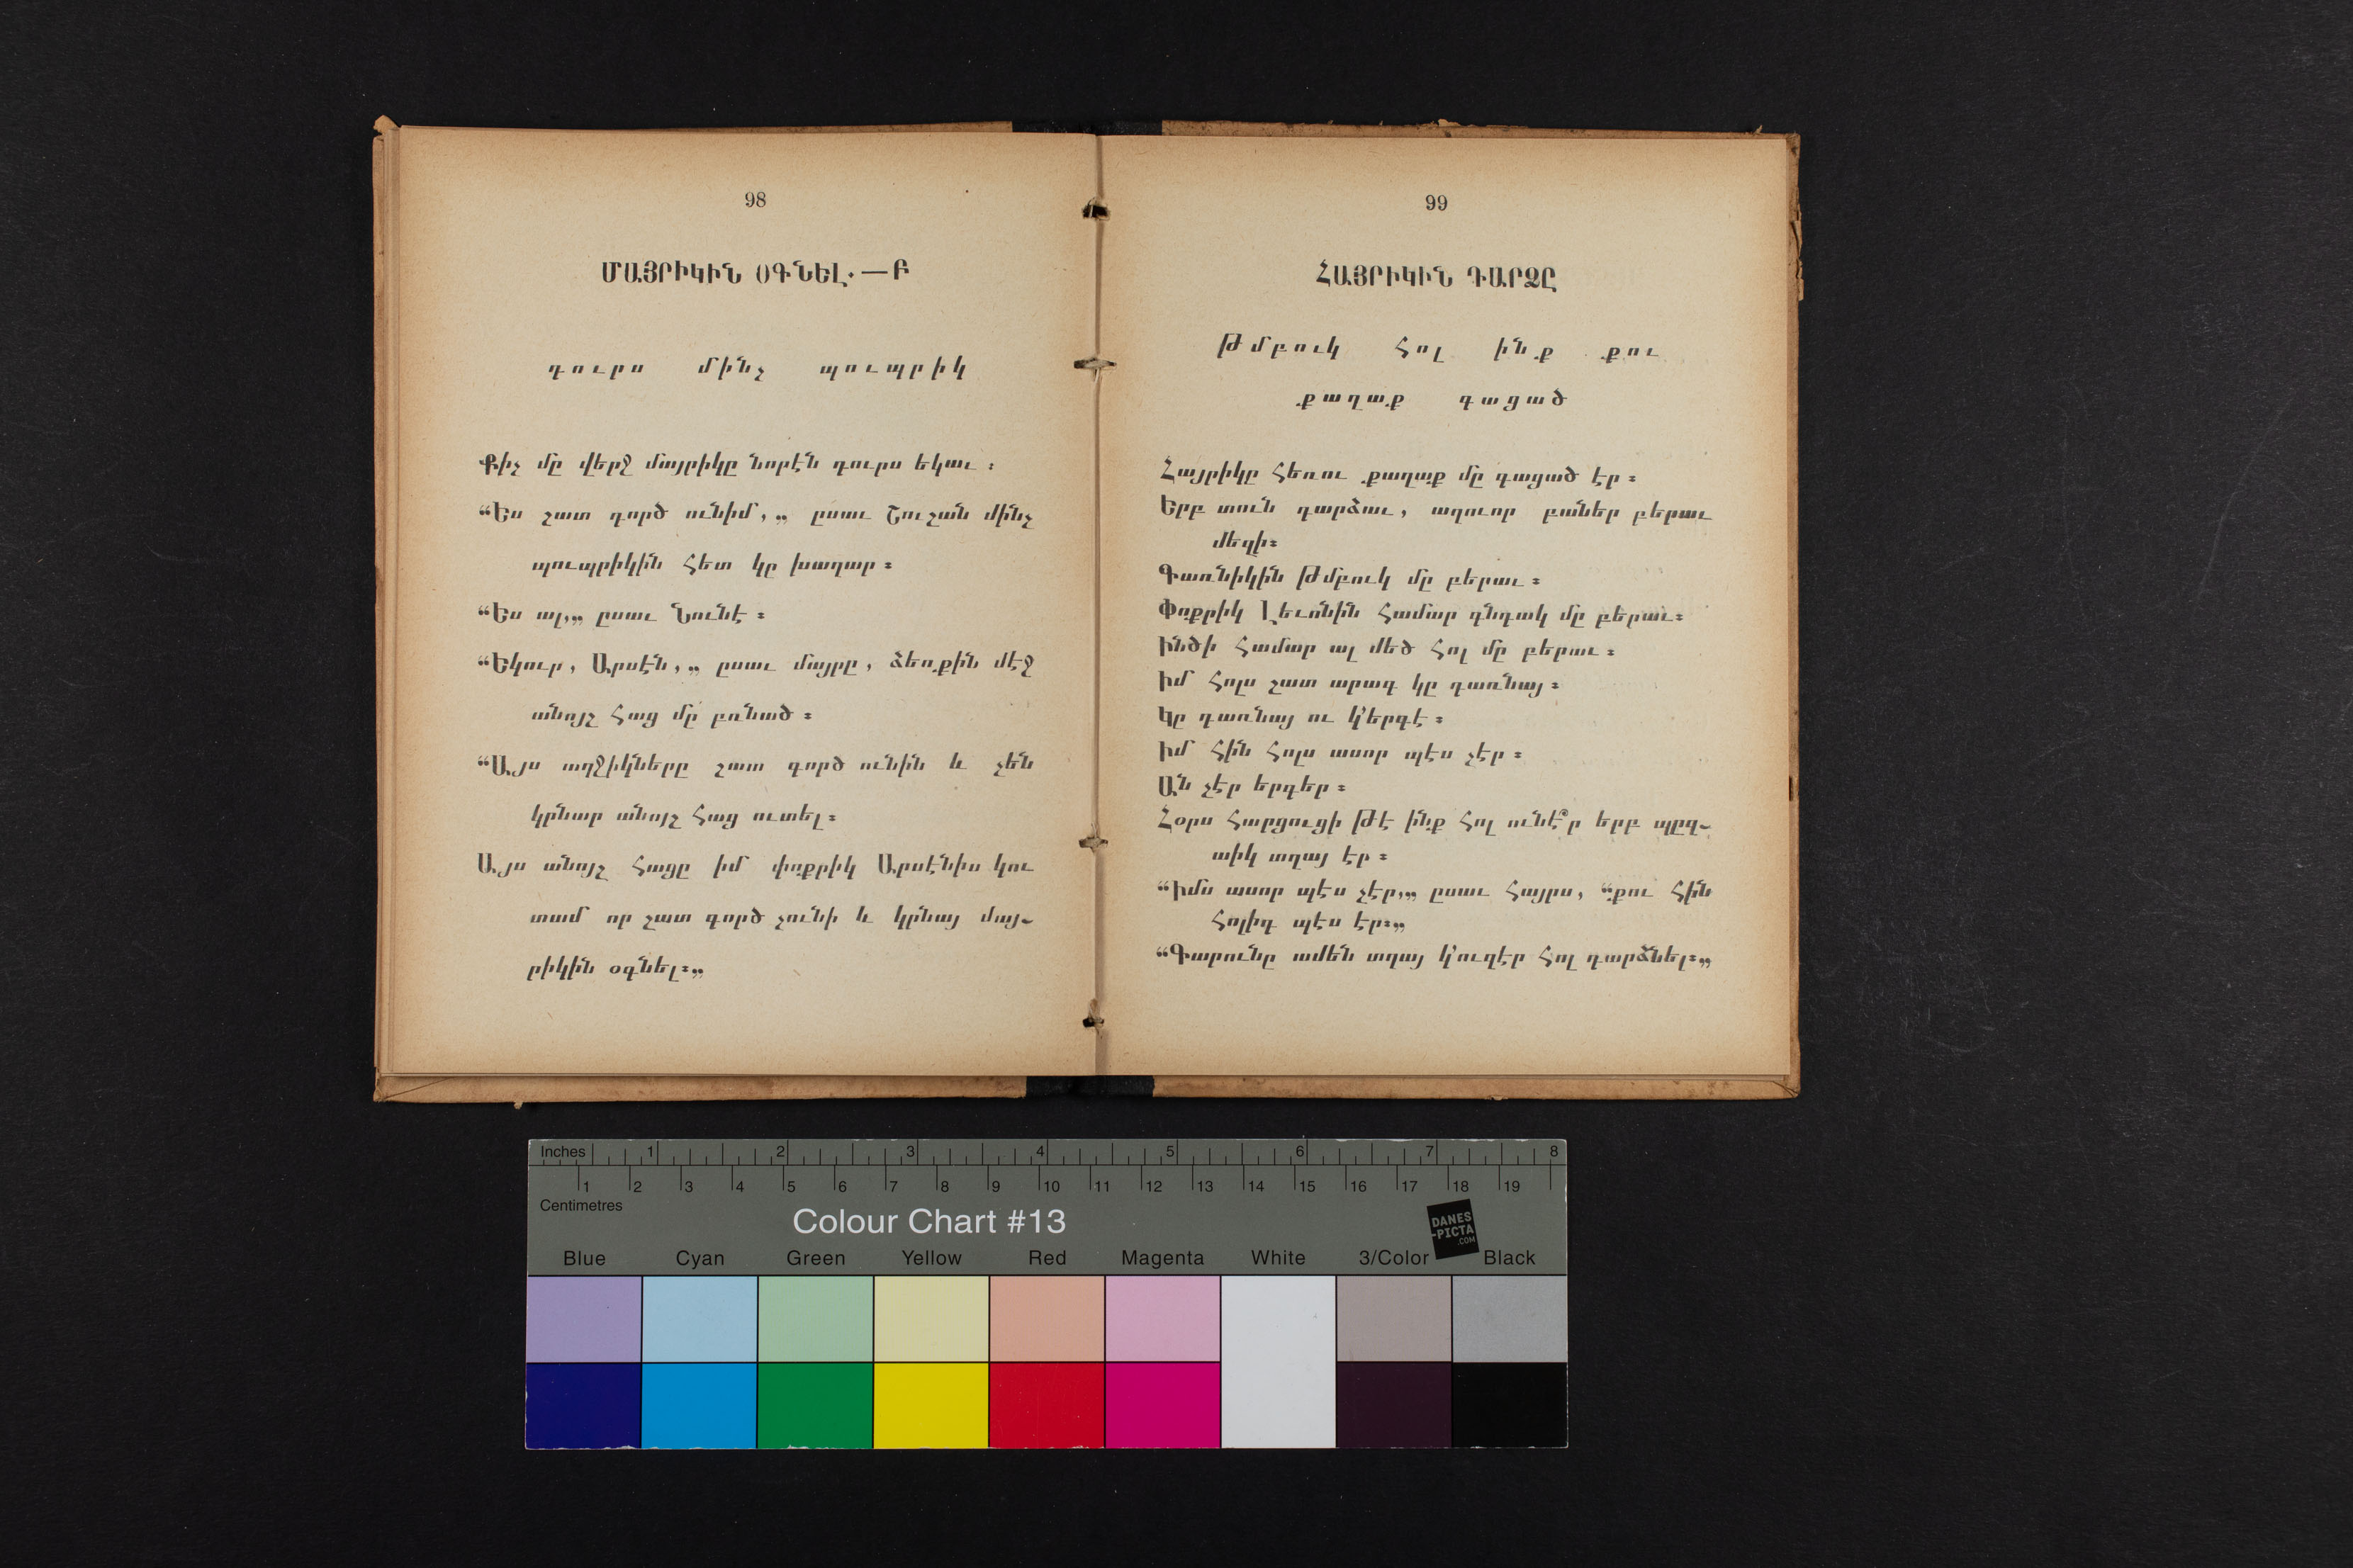 98
ՄԱՅՐԻԿԻՆ ՕԳՆԵԼ.—Բ
դուրս մինչ պուպրիկ
Քիչ մը վերջ մայրիկը նորէն դուրս եկաւ ։
“Ես շատ գործ ունիմ,„ ըսաւ Շուշան մինչ
պուպրիկին հետ կը խաղար ։
“Ես ալ,„ ըսաւ Նունէ ։
“Եկուր, Արսէն,„ ըսաւ մայրը, ձեռքին մէջ
անոյշ հաց մը բռնած ։
“Այս աղջիկները շատ գործ ունին և չեն
կրնար անոյշ հաց ուտել։
Այս անոյշ հացը իմ փոքրիկ Արսէնիս կու
տամ որ շատ գործ չունի և կրնայ մայ-
րիկին օգնել։„
99
ՀԱՅՐԻԿԻՆ ԴԱՐՁԸ
թմբուկ հոլ ինք քու
քաղաք գացած
Հայրիկը հեռու քաղաք մը գացած էր ։
Երբ տուն դարձաւ, աղուոր բաներ բերաւ
մեզի։
Գառնիկին թմբուկ մը բերաւ ։
Փոքրիկ Լեւոնին համար գնդակ մը բերաւ։
Ինծի համար ալ մեծ հոլ մը բերաւ ։
Իմ հոլս շատ արագ կը դառնայ ։
Կը դառնայ ու կ՚երգէ ։
Իմ հին հոլս ասոր պէս չէր ։
Ան չէր երգեր ։
Հօրս հարցուցի թէ ինք հոլ ունէ՞ր երբ պըզ-
տիկ տղայ էր ։
“Իմս ասոր պէս չէր,„ ըսաւ հայրս, “քու հին
հոլիդ պէս էր։„
“Գարունը ամեն տղայ կ՚ուզէր հոլ դարձնել։„
Inches 1 2 3 4 5 6 7 8
1 2 3 4 5 6 7 8 9 10 11 12 13 14 15 16 17 18 19
Centimetres
Colour Chart #13
DANES
-PICTA
.COM
Blue Cyan Green Yellow Red Magenta White 3/Color Black